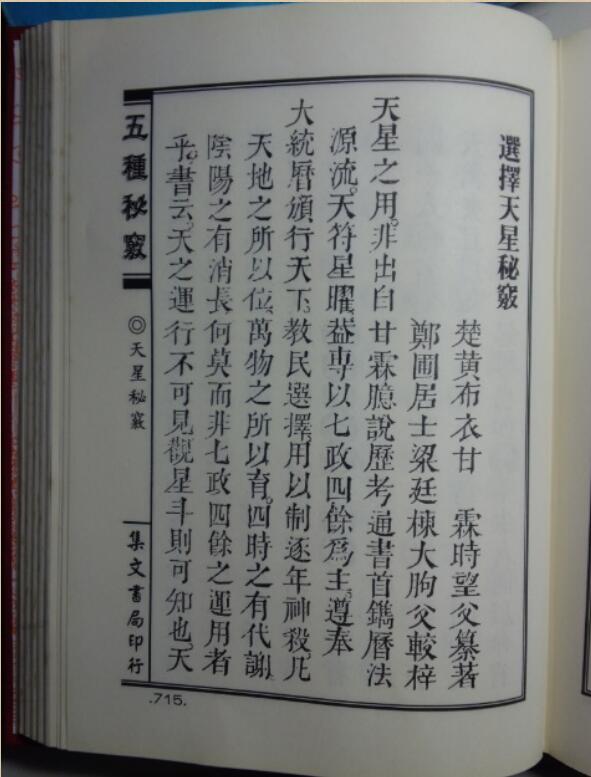 選擇天星秘竅
楚黄布衣甘　霖時望父纂著
鄭圃居士梁廷棟大胊父較梓
天星之用。非出自甘霖臆說歷考通書首鐫曆法
源流。天符星曜。葢専以七政四餘爲主。遵奉
大統曆頒行天下。教民選擇。用以制逐年神殺。凡
天地之所以位。萬物之所以育。四時之有代謝。
陰陽之有消長何莫而非七政四餘之運用者
乎。書云。天之運行不可見觀星斗則可知也。天
五種秘竅
◎天星秘竅
集文書局印行
.715.